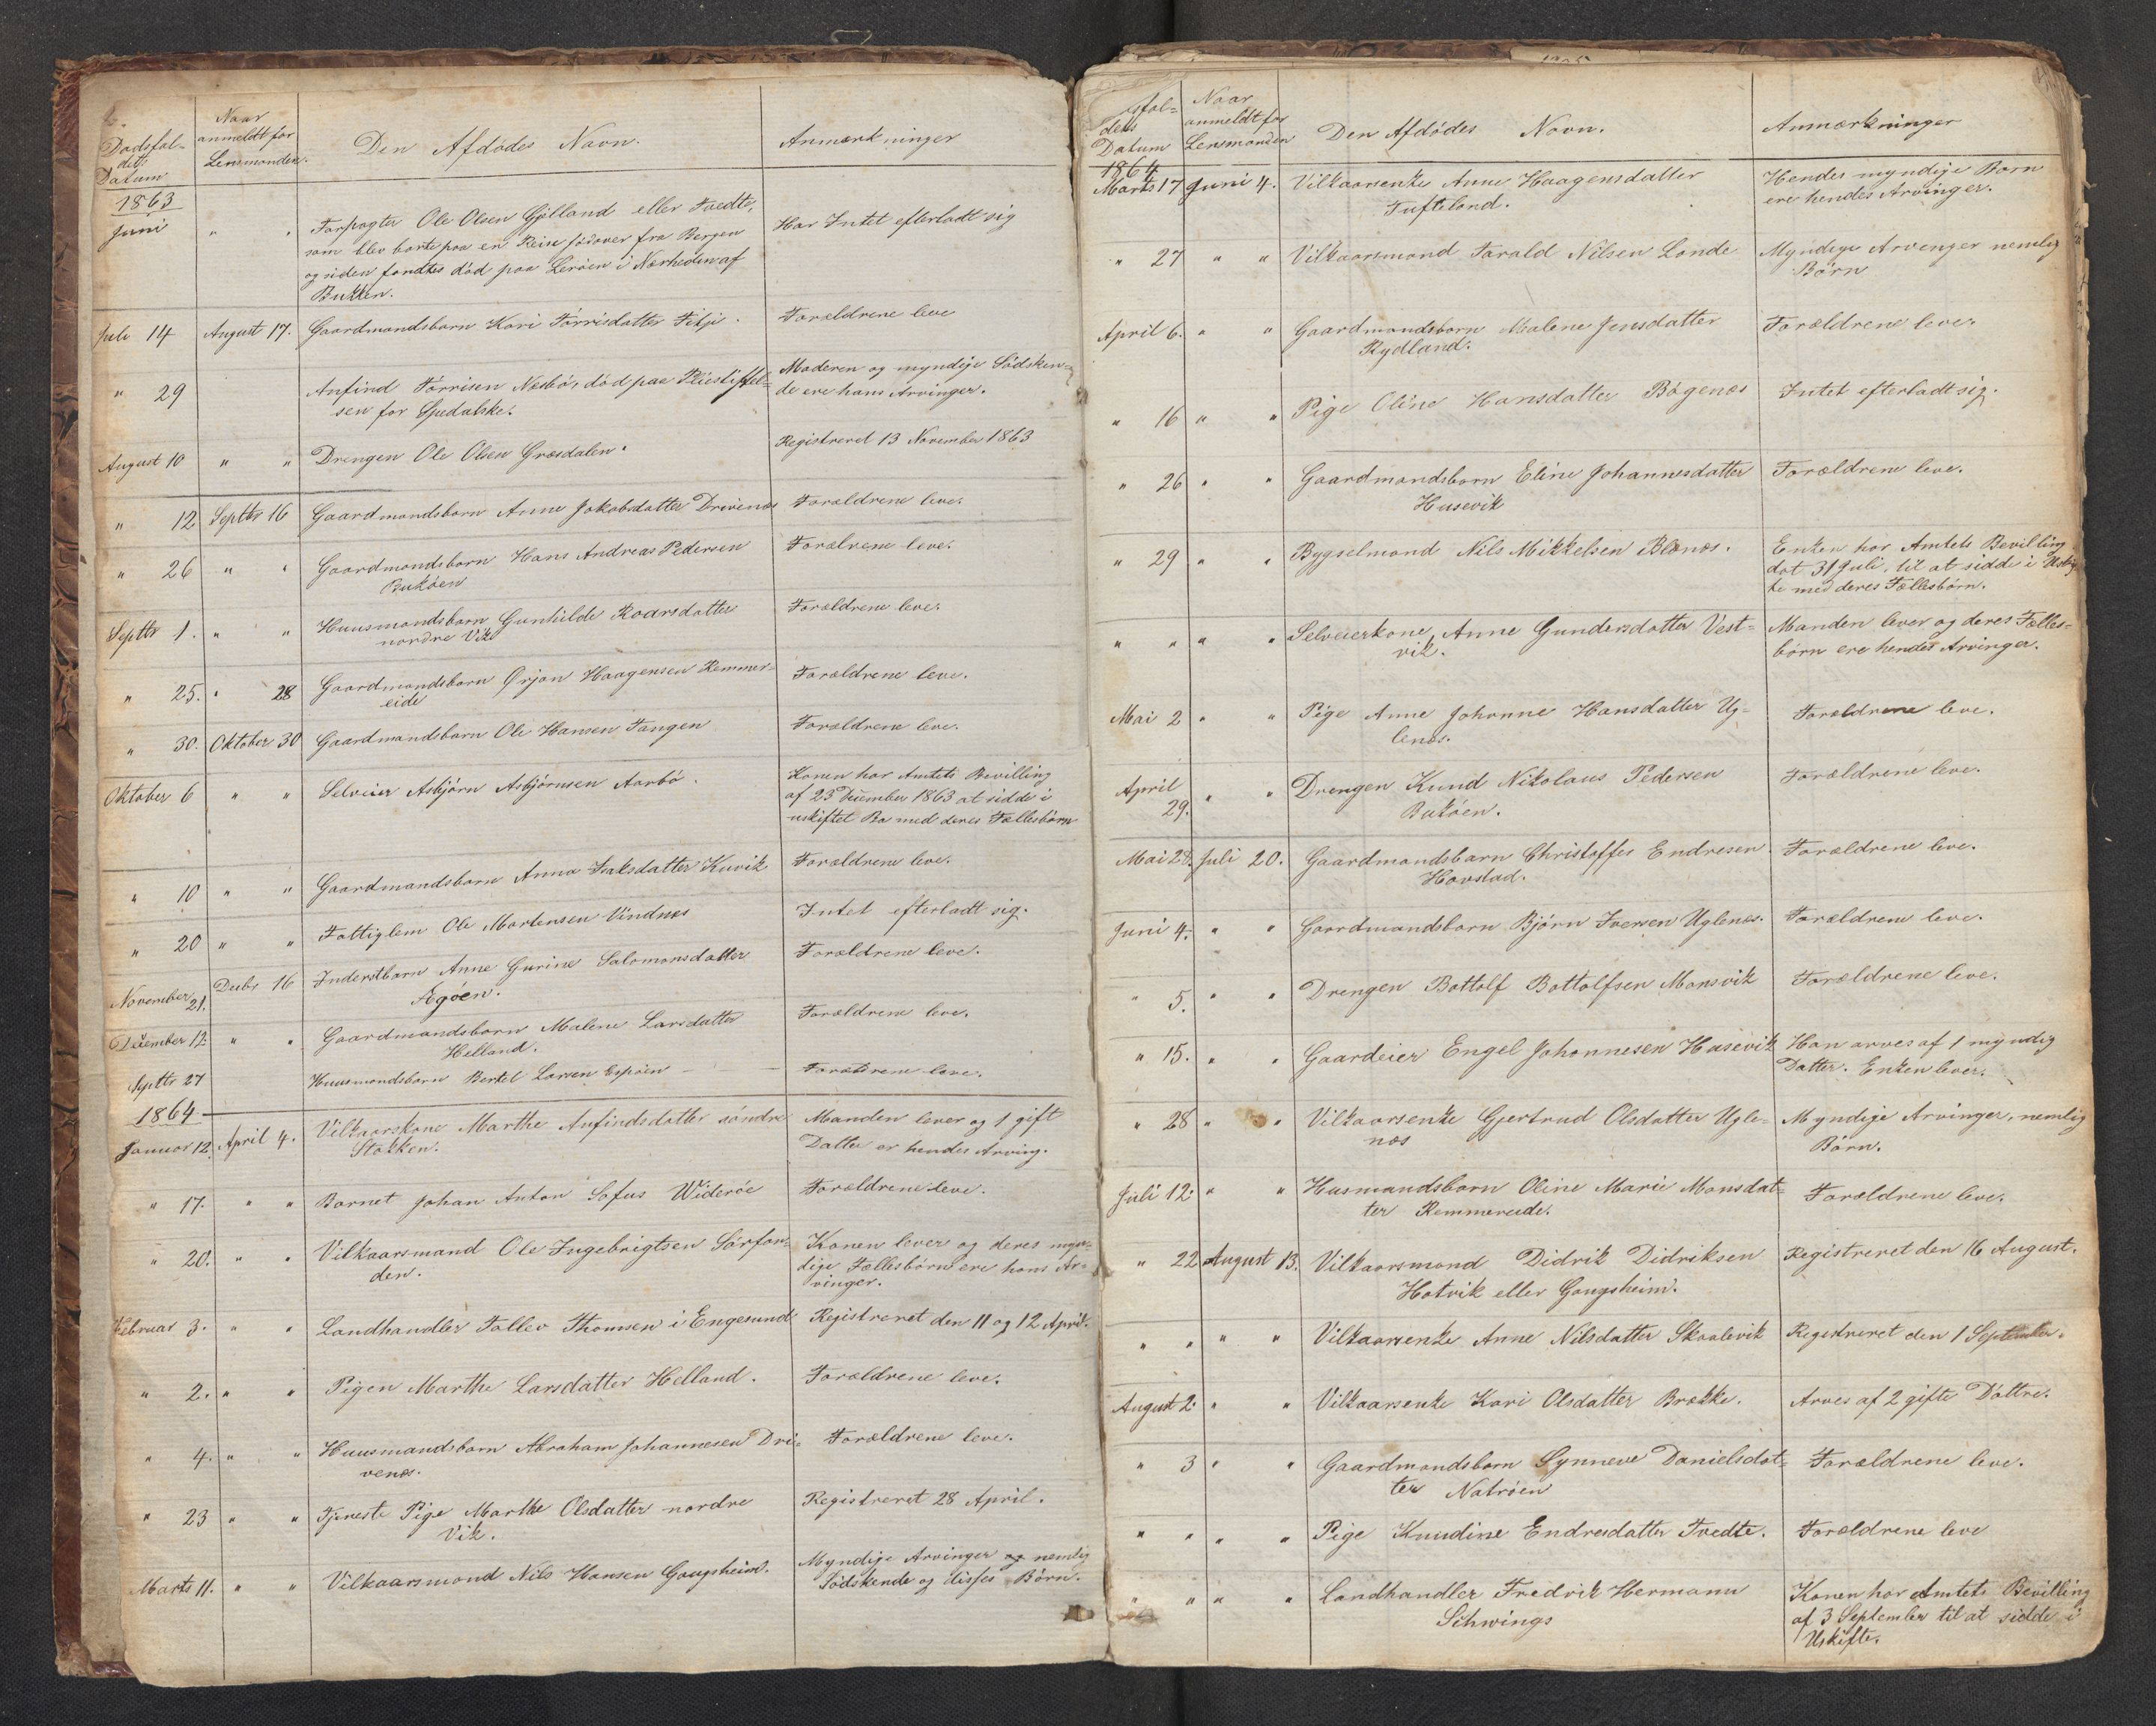 Dødsfal-
dets
Datum
Naar
anmeldt for
Lensmanden.
Den Afdødes Navn.
Anmærkninger
1863
Juni " " Forpagter Ole Olsen Gjilland eller Tvedte, Har Intet efterladt sig
som blev borte paa en Reise sødover fra Bergen
og siden fandtes død paa Lerøen i Nærheden af
Bukken.
Juli 14 August 17. Gaardmandsbarn Kari Tørrisdatter Fitje. Forældrene leve
" 29 Anfind Tørrisen Nesbø, død paa Pleiestiftel- Moderen og myndige Södsken-
sen for Spedalske. de ere hans Arvinger.
August 10 " " Drengen Ole Olsen Græsdalen. Registreret 13 November 1863
" 12 Septbr 16 Gaardmandsbarn Anne Jakobsdatter Drivenæs Forældrene leve.
" 26 " " Gaardmandsbarn Hans Andreas Pedersen Forælrene leve.
Bukøen
Septbr 1. " " Huusmandsbarn Gunhilde Roarsdatter Forældrene leve.
nordre Vik
" 25. " 28 Gaardmandsbarn Ørjan Haagensen Remmer- Forældrene leve.
eide
" 30. Oktober 30 Gaardmandsbarn Ole Hansen Tangen Forældrene leve.
Oktober 6 " " Selveier Asbjørn Asbjørnsen Aarbø. Konen har Amtets Bevilling
af 23 December 1863 at sidde i
uskiftet Bo med deres Fællesbørn
" 10 " " Gaardmandsbarn Anna Isaksdatter Kuvik Forældrene leve.
" 20 " " Fattiglem Ole Martensen Vindnes Intet efterladt sig.
November 21. Decbr 16 Inderstbarn Anne Gurine Salomonsdatter Forældrene leve.
Ægøen.
December 12. " " Gaardmandsbarn Malene Larsdatter Forældrene leve.
Helland.
Septbr 27 Huusmandsbarn Bertel Larsen Espøen Forældrene leve.
1864
Januar 12. April 4. Vilkaarskone Marthe Anfindsdatter søndre Manden lever og 1 gift
Stokken. Datter er hendes Arving.
" 17. " " Barnet Johan Anton Sofus Widerøe Forældrene leve.
" 20. " " Vilkaarsmand Ole Ingebrigtsen Sørfon- Konen lever og deres myn-
den. dige Fællesbørn ere hans Ar-
vinger.
Februar 3. " " Landhandler Tollev Thomsen i Engesund Registreret den 11 og 12 April.
" 2. " " Pigen Marthe Larsdatter Helland. Forældrene leve.
" 4. " " Huusmandsbarn Abraham Johannesen Dri- Forældrene leve.
venæs.
" 23 " " Tjeneste Pige Marthe Olsdatter nordre Registreret 28 April.
Vik.
Marts 11. " " Vilkaarsmand Nils Hansen Gaugsheim. Myndige Arvinger og nemlig
Södskende og disses Børn.
sfal-
dets
Datum
Naar
anmeldt for
Lensmanden
Den Afdødes Navn.
Anmærkninger
1864
Marts 17 Juni 4. Vilkaarsenke Anne Haagensdatter Hendes myndige Børn
Tufteland. ere hendes Arvinger.
" 27 " " Vilkaarsmand Tarald Nilsen Lande Myndige Arvenger nemlig
Børn
April 6. " " Gaardmandsbarn Malene Jensdatter Forældrene leve.
Rydland.
" 16 " " Pige Oline Hansdatter Bøgenæs Intet efterladt sig.
" 26 " " Gaardmandsbarn Eline Johannesdatter Forældrene leve.
Husevik
" 29 " " Bygselmand Nils Mikkelsen Blænæs. Enken har Amtets Bevilling
dat 31 Juli, til at sidde i Uskif-
te med deres Fællesbørn.
" " " " Selveierkone, Anne Gundersdatter Vest- Manden lever og deres Fælles-
vik. børn ere hendes Arvinger.
Mai 2 " " Pige Anne Johanne Hansdatter Ug- Forældrene leve.
lenæs.
April
29. " " Drengen Knud Nikolaus Pedersen Forældrene leve.
Bukøen.
Mai 28. Juli 20. Gaardmandsbarn Christoffer Endresen Forældrene leve.
Havstad.
Juni 4. " " Gaardmandsbarn Bjørn Iversen Uglenæs. Forældrene leve.
" 5. " " Drengen Bottolf Bottolfsen Mansvik Forældrene leve.
" 15. " " Gaardeier Engel Johannesen Husevik Han arves af 1 myndig
Datter. Enken lever.
" 28 " " Vilkaarsenke Gjertrud Olsdatter Ugle- Myndige Arvinger, nemlig
næs Børn.
Juli 12. " " Husmandsbarn Oline Marie Monsdat- Forældrene leve.
ter Remmereide.
" 22 August 13. Vilkaarsmand Didrik Didriksen Registreret den 16 August.
Hatvik eller Gaugsheim.
" " " " Vilkaarsenke Anne Nilsdatter Skaalevik Registreret den 1 September.
August 2. " " Vilkaarsenke Kari Olsdatter Brække. Arves af 2 gifte Døttre.
" 3 " " Gaardmandsbarn Synneve Danielsdat- Forældrene leve.
ter Natrøen
" " " " Pige Knudine Endresdatter Tvedte. Forældrene leve
" " " " Landhandler Fredrik Hermann Konen har Amtets Bevilling
Schwings af 3 September til at sidde i
Uskifte.